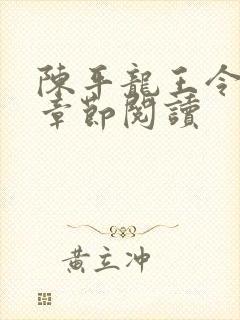 陳平龍王令
章節閱讀
黃立冲